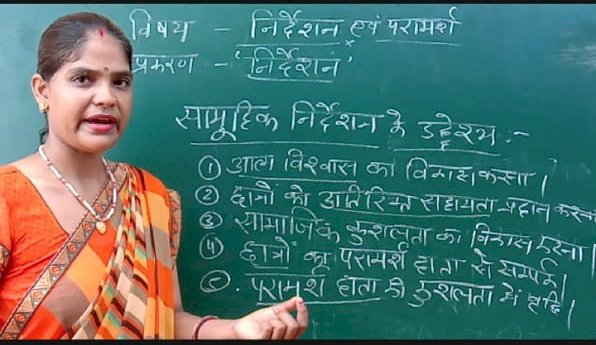 विषय - निर्देशन एवं परामर्श
प्रकरण - 'निर्देशन'
सामूहिक निर्देशन के उद्देश्य :-
① आत्म विश्वास का विकास करना |
② छात्रों को अतिरिक्त सहायता प्रदान करना
③ सामाजिक कुशलता का विकास करना |
④ छात्रों का परामर्श दाता से सम्पर्क |
⑤ . परामर्श दाता की कुशलता में वृद्धि |